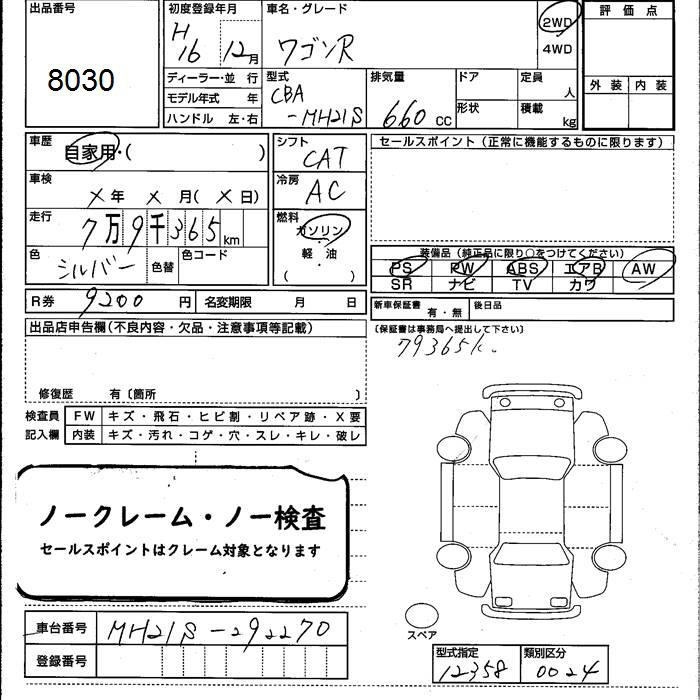 出品番号
8030
初度登録年月
H16 12月
車名・グレード
ワゴンR
2WD
4WD
評価点
外装 内装
ディーラー・並 行
モデル年式 年
ハンドル 左・右
型式
CBA
-MH21S
排気量
660 CC
ドア
形状
定員
人
積載
kg
車歴
自家用・( )
車検
X年 X月(X日)
走行
7万9千365km
色
シルバー
色替
色コード
シフト
CAT
冷房
AC
燃料
ガソリン
軽・油
( )
セールスポイント(正常に機能するものに限ります)
装備品(純正品に限り○をつけてください)
PS PW ABS エアB AW
SR ナビ TV カワ
R券 9200 円 名変期限 月 日
新車保証書 有・無 後日品
(保証書は事務局へ提出して下さい)
79365k.
出品店申告欄(不良内容・欠品・注意事項等記載)
修復歴 有〔箇所 〕
検査員
記入欄
FW キズ・飛石・ヒビ割・リペア跡・X要
内装 キズ・汚れ・コゲ・穴・スレ・キレ・破レ
ノークレーム・ノー検査
セールスポイントはクレーム対象となります
車台番号 MH21S-292270
登録番号
スペア
型式指定
12358
類別区分
0024